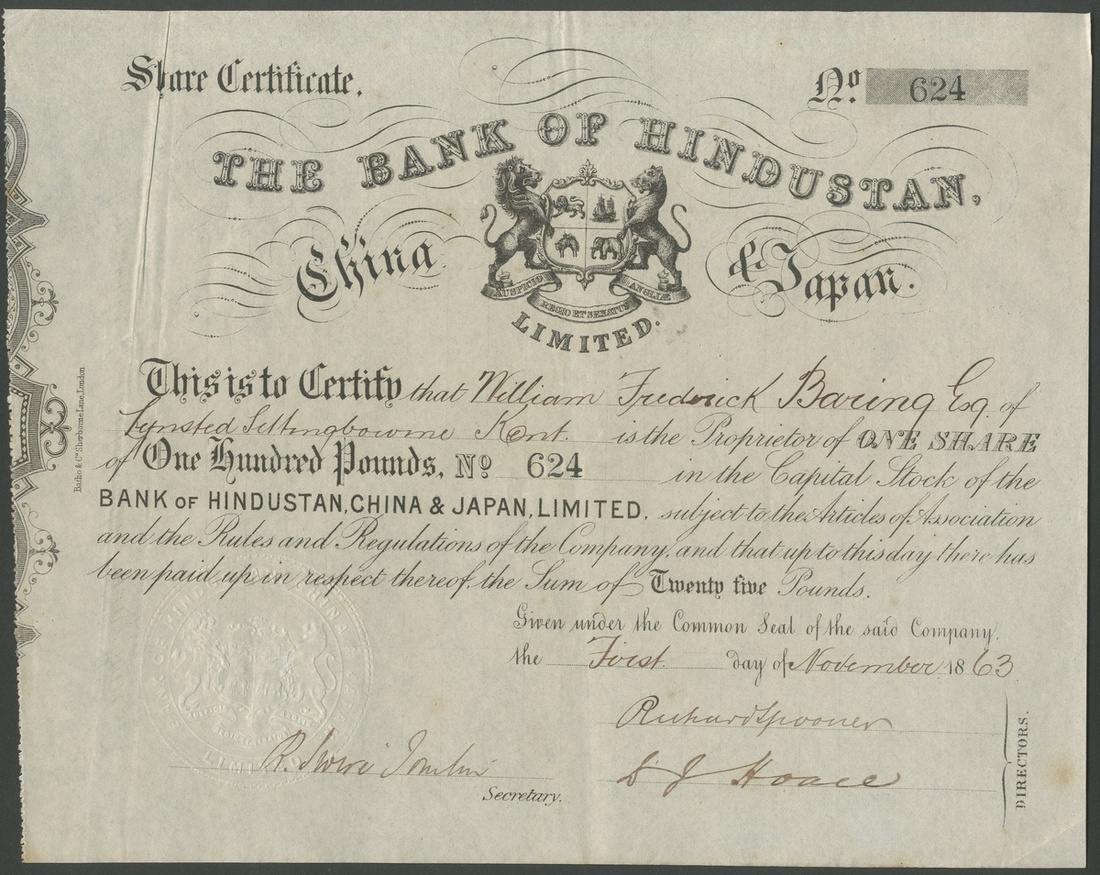 Share Certificate.
No. 624
THE BANK OF HINDUSTAN,
China & Japan.
AUSPICIO REGIO ET SENATUS ANGLIÆ
LIMITED.
This is to Certify that William Frederick Baring Esq. of
Lynsted Sittingbourne Kent. is the Proprietor of ONE SHARE
of One Hundred Pounds, No 624 in the Capital Stock of the
BANK OF HINDUSTAN, CHINA & JAPAN, LIMITED. subject to the Articles of Association
and the Rules and Regulations of the Company, and that up to this day there has
been paid up in respect thereof, the Sum of Twenty five Pounds.
Given under the Common Seal of the said Company,
the First day of November 1863
Richard Spooner
Secretary.
DIRECTORS.
Batho & Co. Sherborne Lane, London
LIMITED